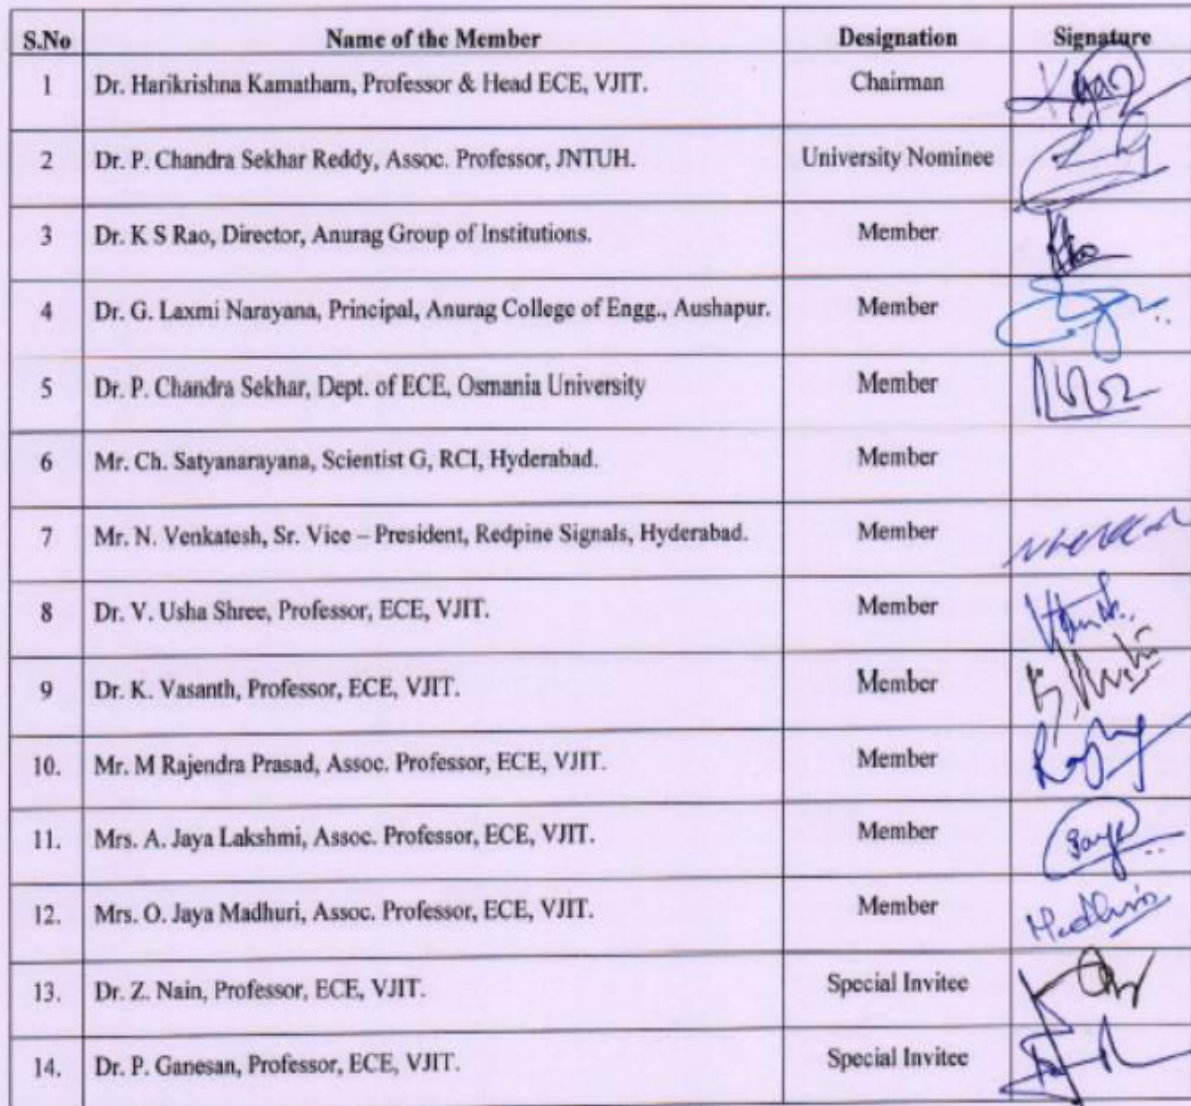 S.No Name of the Member Designation Signature
1 Dr. Harikrishna Kamatham, Professor & Head ECE, VJIT. Chairman
2 Dr. P. Chandra Sekhar Reddy, Assoc. Professor, JNTUH. University Nominee
3 Dr. K S Rao, Director, Anurag Group of Institutions. Member
4 Dr. G. Laxmi Narayana, Principal, Anurag College of Engg., Aushapur. Member
5 Dr. P. Chandra Sekhar, Dept. of ECE, Osmania University Member
6 Mr. Ch. Satyanarayana, Scientist G, RCI, Hyderabad. Member
7 Mr. N. Venkatesh, Sr. Vice – President, Redpine Signals, Hyderabad. Member
8 Dr. V. Usha Shree, Professor, ECE, VJIT. Member
9 Dr. K. Vasanth, Professor, ECE, VJIT. Member
10. Mr. M Rajendra Prasad, Assoc. Professor, ECE, VJIT. Member
11. Mrs. A. Jaya Lakshmi, Assoc. Professor, ECE, VJIT. Member Jaya
12. Mrs. O. Jaya Madhuri, Assoc. Professor, ECE, VJIT. Member Madhuri
13. Dr. Z. Nain, Professor, ECE, VJIT. Special Invitee
14. Dr. P. Ganesan, Professor, ECE, VJIT. Special Invitee